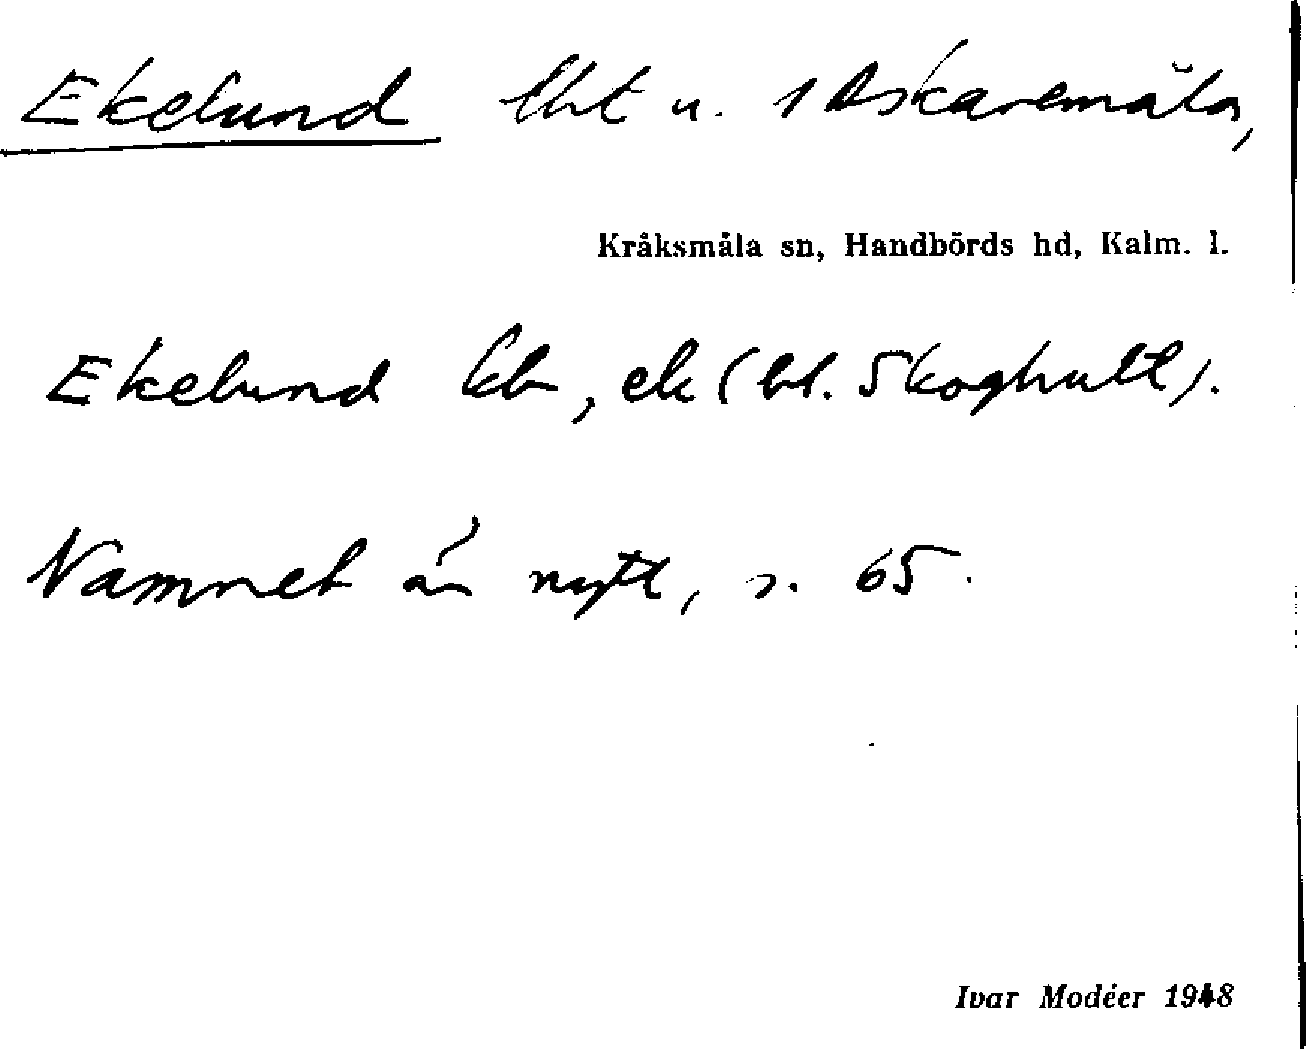 Ekelund lht u. 1 Askaremåla,
Kråksmåla sn, Handbörds hd, Kalm. l.
Ekelund kb, ek (bl. Skoghult).
Namnet är nytt, s. 65.
Ivar Modéer 1948